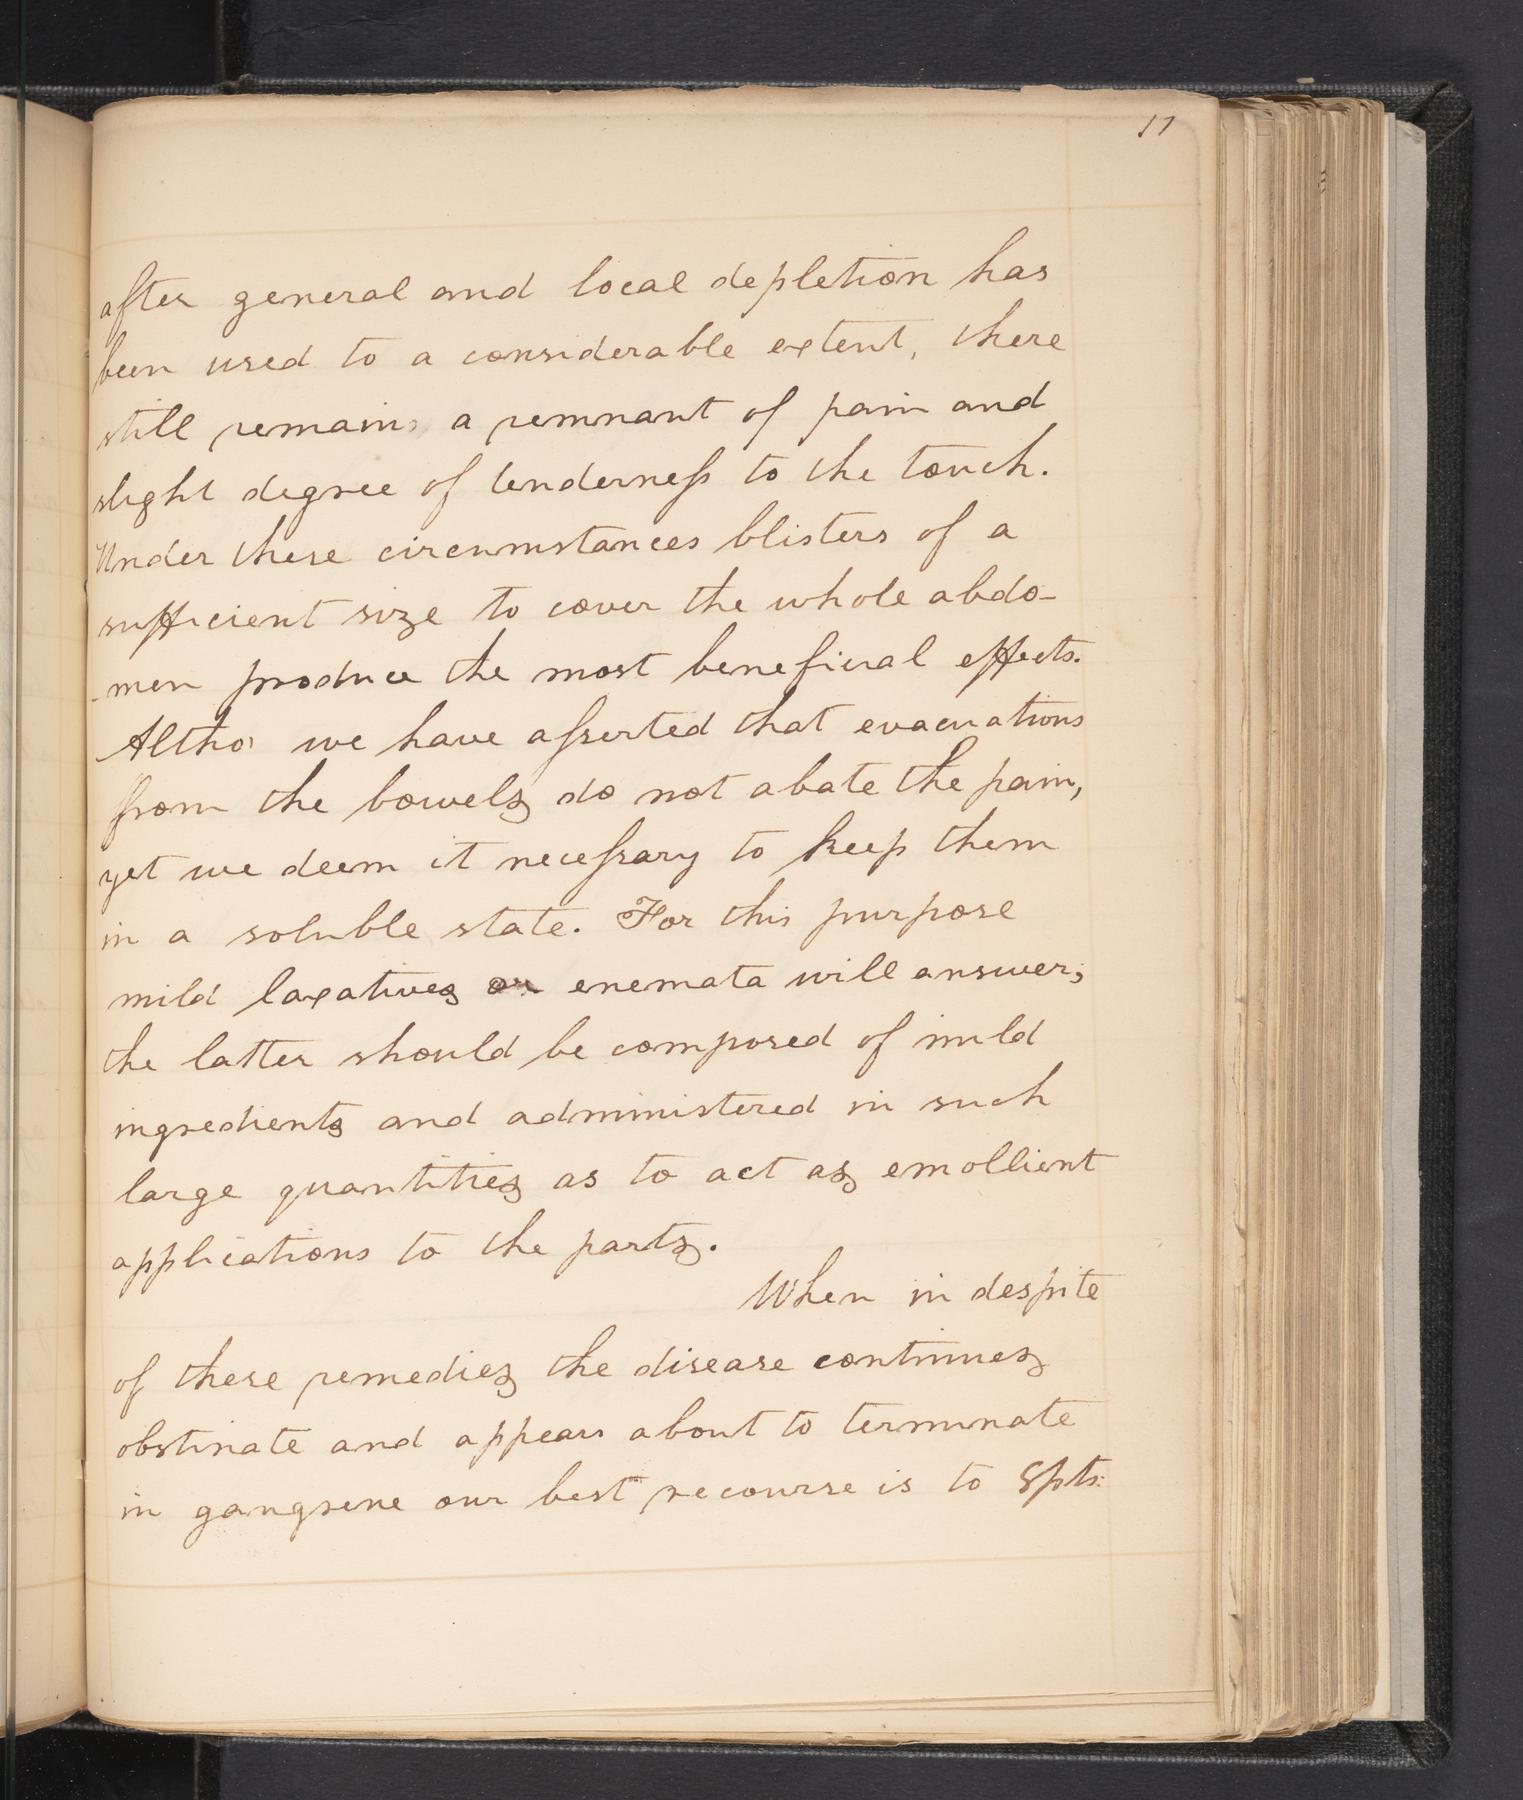 17
after general and local depletion has
been used to a considerable extent, there
still remains a remnant of pain and
slight degree of tenderness to the touch.
Under these circumstances blisters of a
sufficient size to cover the whole abdo-
-men produce the most beneficial effects.
Altho' we have asserted that evacuations
from the bowels do not abate the pain,
yet we deem it necessary to keep them
in a soluble state. For this purpose
mild laxatives or enemata will answer;
the latter should be composed of mild
ingredients and administered in such
large quantities as to act as emollient
applications to the parts.
When in despite
of these remedies the disease continues
obstinate and appears about to terminate
in gangrene our best recourse is to Spts: